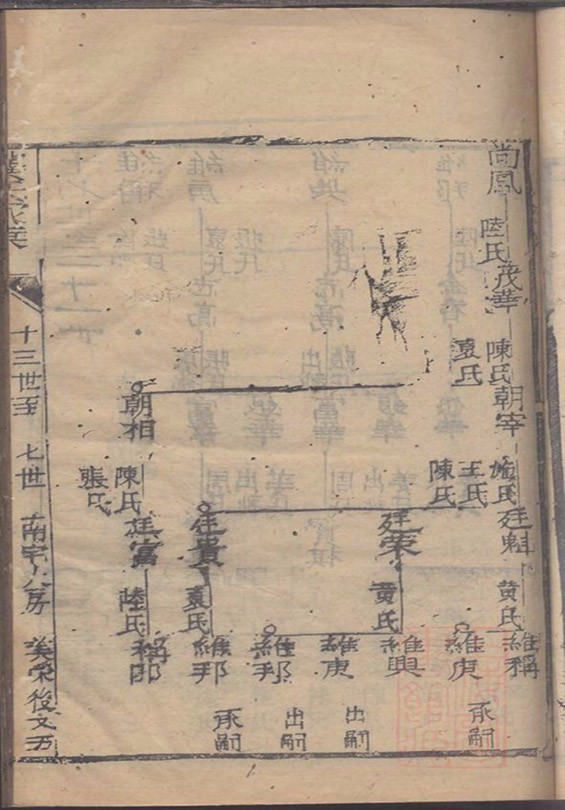 尚鳳
陸氏
茂華
陳氏
袁氏
朝宰
施氏
王氏
陳氏
廷魁
黄氏
維稱
維庚
承嗣
廷荣
黄氏
維興
維庚
出嗣
維邦
出嗣
廷貴
袁氏
維邦
承嗣
朝相
陳氏
張氏
廷富
陸氏
稱
十三世至
七世
南宅
八房
後